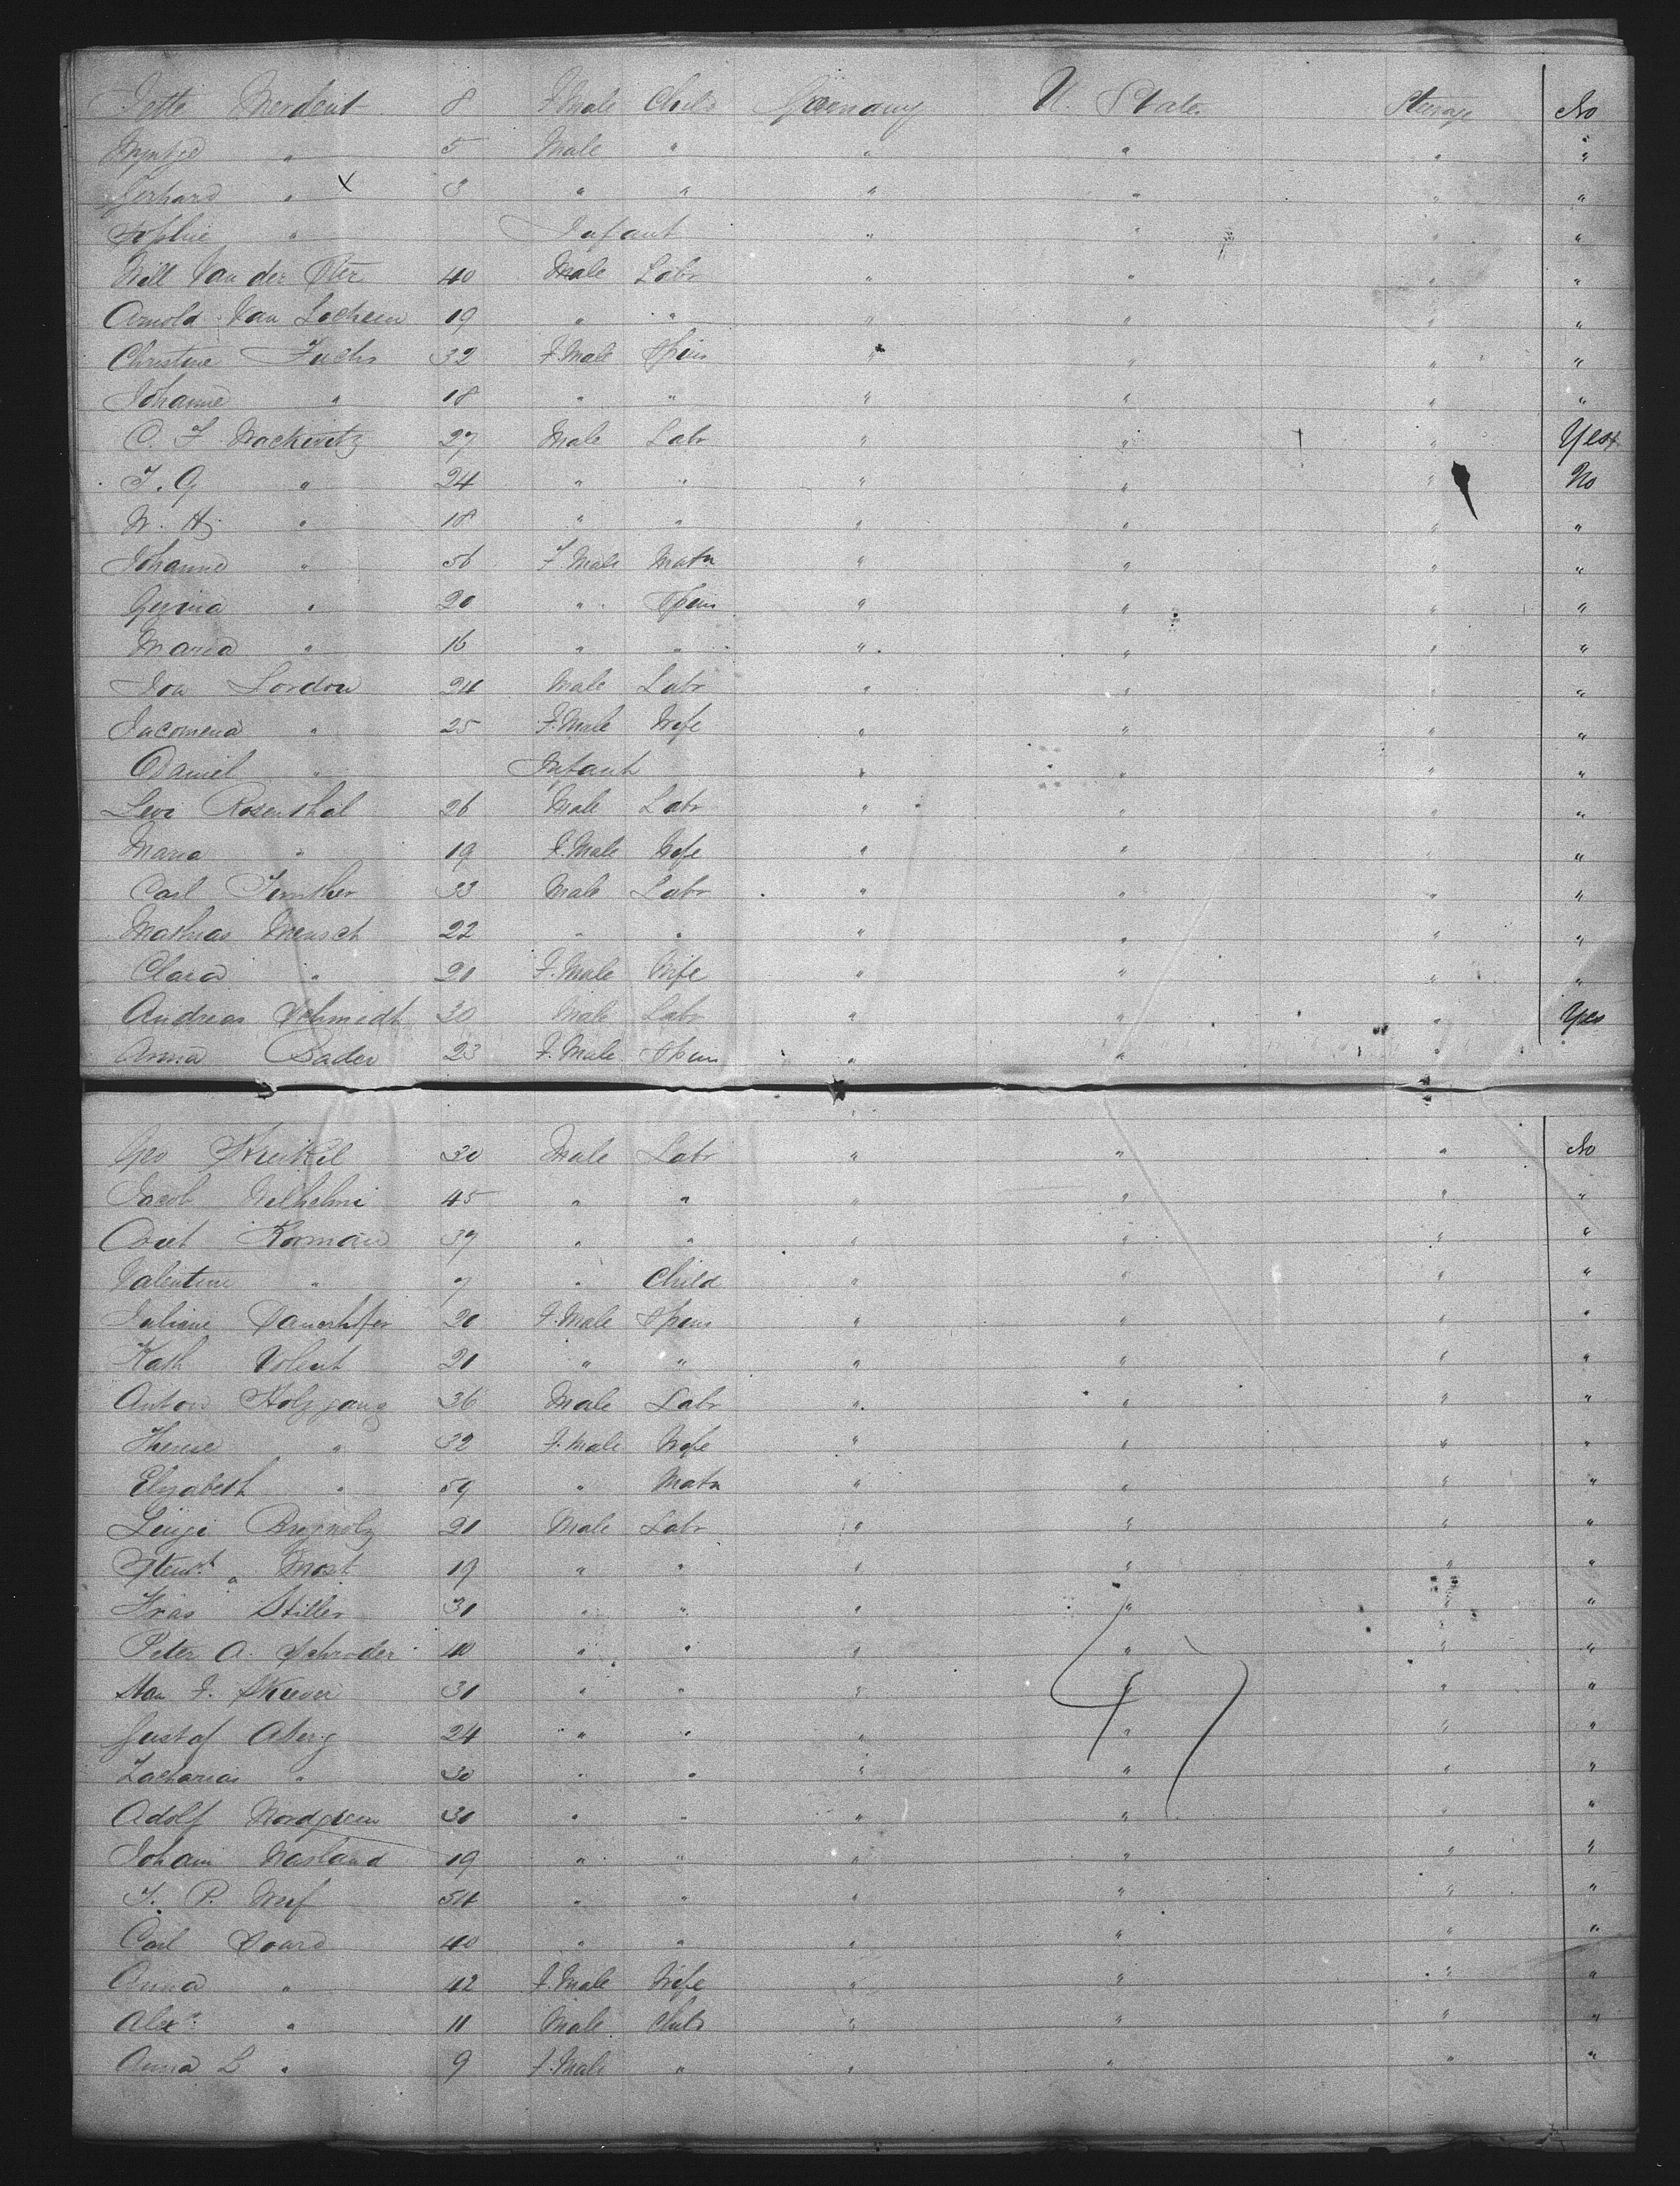 Jette Merdent 8 F.Male Child Germany U. States Steerage No
" 5 Male " " " " "
Gerhard " x 3 " " " " " "
Sophie " Infant " " " "
Will Van der Ster 40 Male Labr " " " "
Arnold Van Lochem 19 " " " " " "
Christine Fuchs 32 F.Male Spins " " " "
Johanne " 18 " " " " " "
C. F. Wachwitz 27 Male Labr " " " Yes
F. G " 24 " " " " " No
W. H. " 18 " " " " " "
Johanne " 56 F.Male Matn " " " "
Gesina " 20 " Spins " " " "
Maria " 16 " " " " " "
Jon Lordon 24 Male Labr " " " "
Jacomena " 25 F.Male Wife " " " "
Daniel " Infant " " " "
Levi Rosenthal 26 Male Labr " " " "
Maria " 19 F.Male Wife " " " "
Carl 33 Male Labr " " " "
Mathias Mensch 22 " " " " " "
Clara " 21 F.Male Wife " " " "
Andreas Schmidt 30 Male Labr " " " Yes
Anna Bader 23 F.Male Spins " " "
Geo Kunkel 30 Male Labr " " " No
Jacob Wilhelmi 45 " " " " " "
Korman 37 " " " " " "
Valentine " 7 " Child " " " "
Juliane 20 F.Male Spins " " " "
Kath Volent 21 " " " " " "
Anton Holzgang 36 Male Labr " " " "
Therese " 32 F.Male Wife " " " "
Elizabeth " 59 " Matn " " " "
Luigi 21 Male Labr " " " "
Most 19 " " " " " "
Stiller 31 " " " " " "
Peter A. Schroder 40 " " " " " "
31 " " " " " "
Gustaf Aberg 24 " " " " " "
Zacharias " 30 " " " " " "
Adolf Nordgreen 31 " " " " " "
Johann Wasland 19 " " " " " "
54 " " " " " "
Carl Soard 40 " " " " " "
Anna " 42 F.Male Wife " " " "
Alex " 11 Male Child " " " "
Anna L " 9 F.Male " " " " "
47